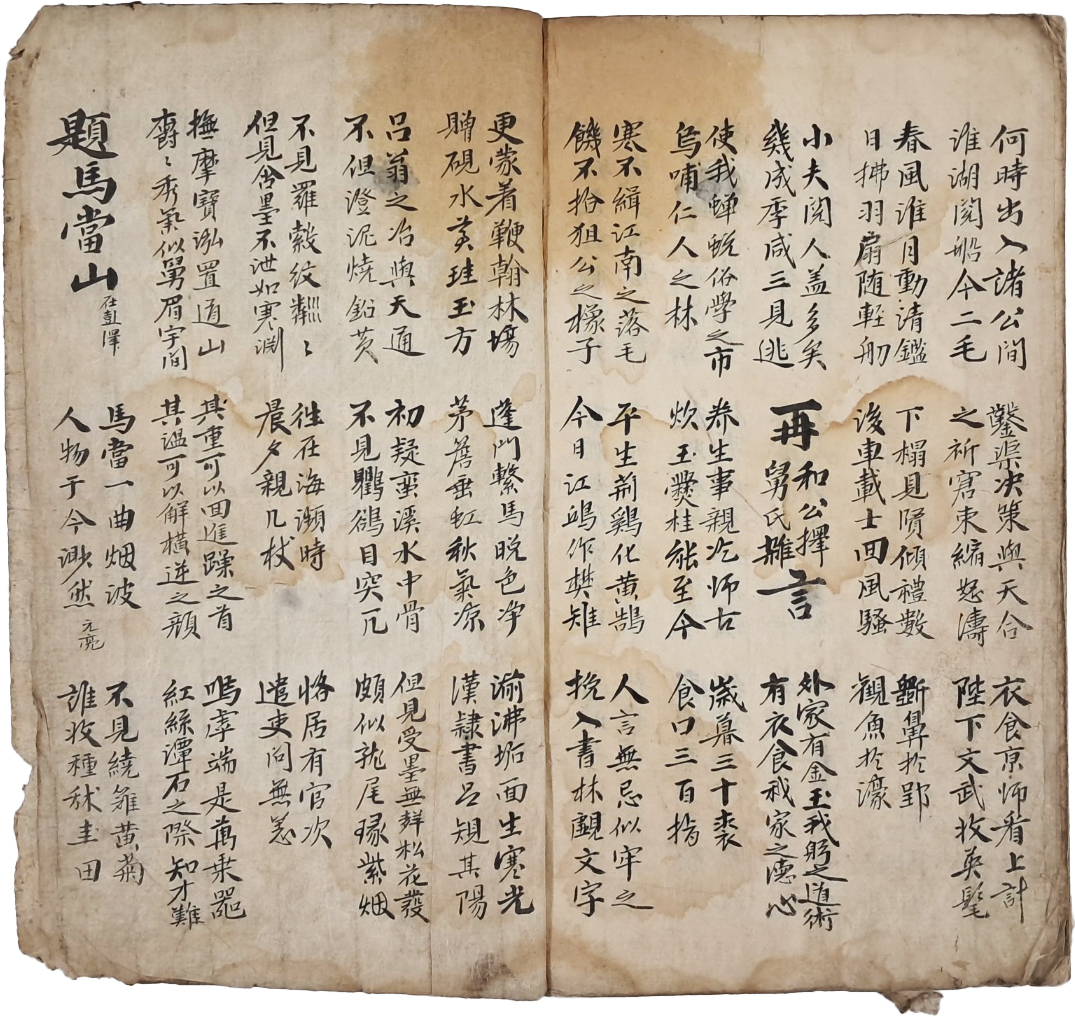 何時出入諸公間
淮湖閱船今二毛
鑿渠决策與天合
之祈窘束縮怒濤
衣食京師看上計
陛下文武收英髦
春風淮月動清鑑
日拂羽扇随輕舠
下榻見賢傾禮數
後車載士回風騷
斲鼻於郢
觀魚於濠
小夫閱人蓋多矣
幾成季咸三見逃
再和公擇舅氏雜言
外家有金玉我躬之道術
有衣食我家之德心
使我蟬蛻俗學之市
烏哺仁人之林
养生事親汔師古
炊玉爨桂能至今
歲暮三十裘
食口三百指
寒不緝江南之落毛
饑不拾狙公之橡子
平生荊鷄化黄鵠
今日江鴻作樊雉
人言無忌似牢之
挽入書林覷文字
更蒙着鞭翰林塲
贈硯水蒼珪玉方
蓬門繋馬晚色净
茅簷垂虹秋氣凉
湔沸垢面生寒光
漢隸書吕規其陽
吕翁之冶與天通
不但澄泥燒鉛黄
初疑蛮溪水中骨
不見鸜鵒目突兀
但見受墨無聲松花發
頗似龍尾琢紫烟
不見羅縠紋粼〻
但見含墨不泄如寒淵
往在海瀕時
晨夕親几杖
恪居有官次
遣吏問無恙
撫摩寶泓置道山
欝〻秀氣似舅眉宇間
其重可以回進躁之首
其温可以解横逆之顔
嗚虖端是萬乗器
紅絲潭石之際知才難
題馬當山在彭澤
馬當一曲烟波
人物于今渺然元亮
不見繞籬黄菊
誰收種秫圭田